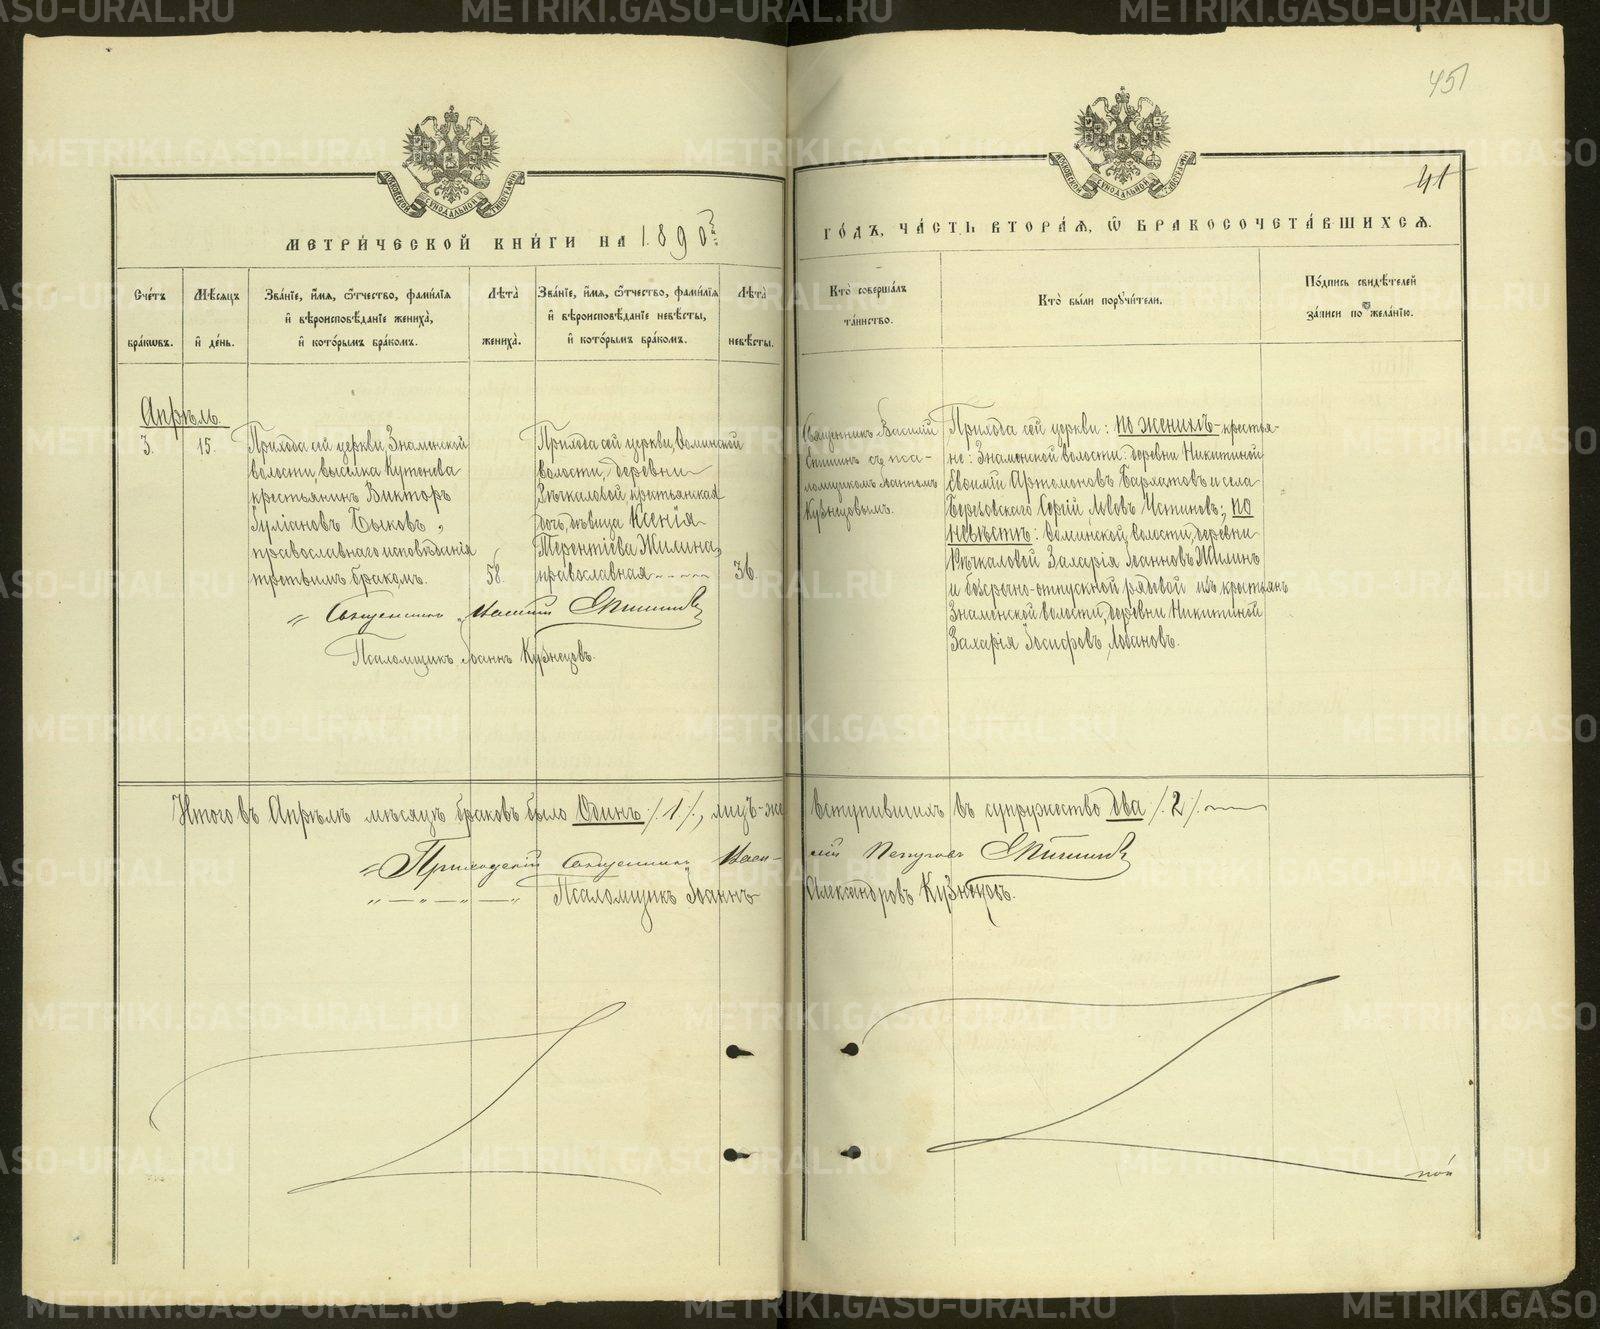 451
41
МОСКОВСКОЙ СѴНОДАЛЬНОЙ ТИПОГРАФІИ
МОСКОВСКОЙ СѴНОДАЛЬНОЙ ТИПОГРАФІИ
МЕТРИ́ЧЕСКОЙ КНИ́ГИ НА 1890й
ГО́ДЪ, ЧА́СТЬ ВТОРА́Ѧ, Ѿ БРАКОСОЧЕТА́ВШИХСѦ.
Счетъ бракѡвъ.
Мѣсяцъ и день.
Званіе, имя, ѿчество, фамилія
и вѣроисповѣданіе жениха,
и которымъ бракомъ.
Лѣта жениха.
Званіе, имя, ѿчество, фамилія
и вѣроисповѣданіе невѣсты,
и которымъ бракомъ.
Лѣта невѣсты.
Кто совершалъ
таинство.
Кто были поручители.
Подпись свидѣтелей
записи по желанію.
Апрѣль.
3. 15.
Прихода сей церкви, Знаменской
волости, выселка Кутенева
крестьянинъ Викторъ
Іуліановъ Быковъ,
православнаго исповѣданія
третьимъ бракомъ.
58.
Прихода сей церкви,
волости, деревни
Вѣчкаловой, крестьянская
дочь, дѣвица Ксенія
Терентіева Жилина,
православная
36.
Священникъ Василій
съ пса-
ломщикомъ Іоанномъ
Кузнецовымъ.
Прихода сей церкви: по женихѣ - крестья-
не: Знаменской волости: деревни Никитиной
Евѳимій Артемоновъ и села
Сергій Львовъ Устиновъ; по
невѣстѣ: волости, деревни
Вѣчкаловой Захарія Іоанновъ Жилинъ
и безсрочно-отпускной рядовой изъ крестьянъ
Знаменской волости, деревни Никитиной
Захарія Іосифовъ Лобановъ.
Священникъ Василій
Псаломщикъ Іоаннъ Кузнецовъ.
Итого въ Апрѣлѣ мѣсяцѣ браковъ было Одинъ /1/, лицъ-же
вступившихъ въ супружество два /2/
Приходскій Священникъ Васи-
лій Петровъ
Псаломщикъ Іоаннъ
Александровъ Кузнецовъ.
METRIKI.GASO-URAL.RU